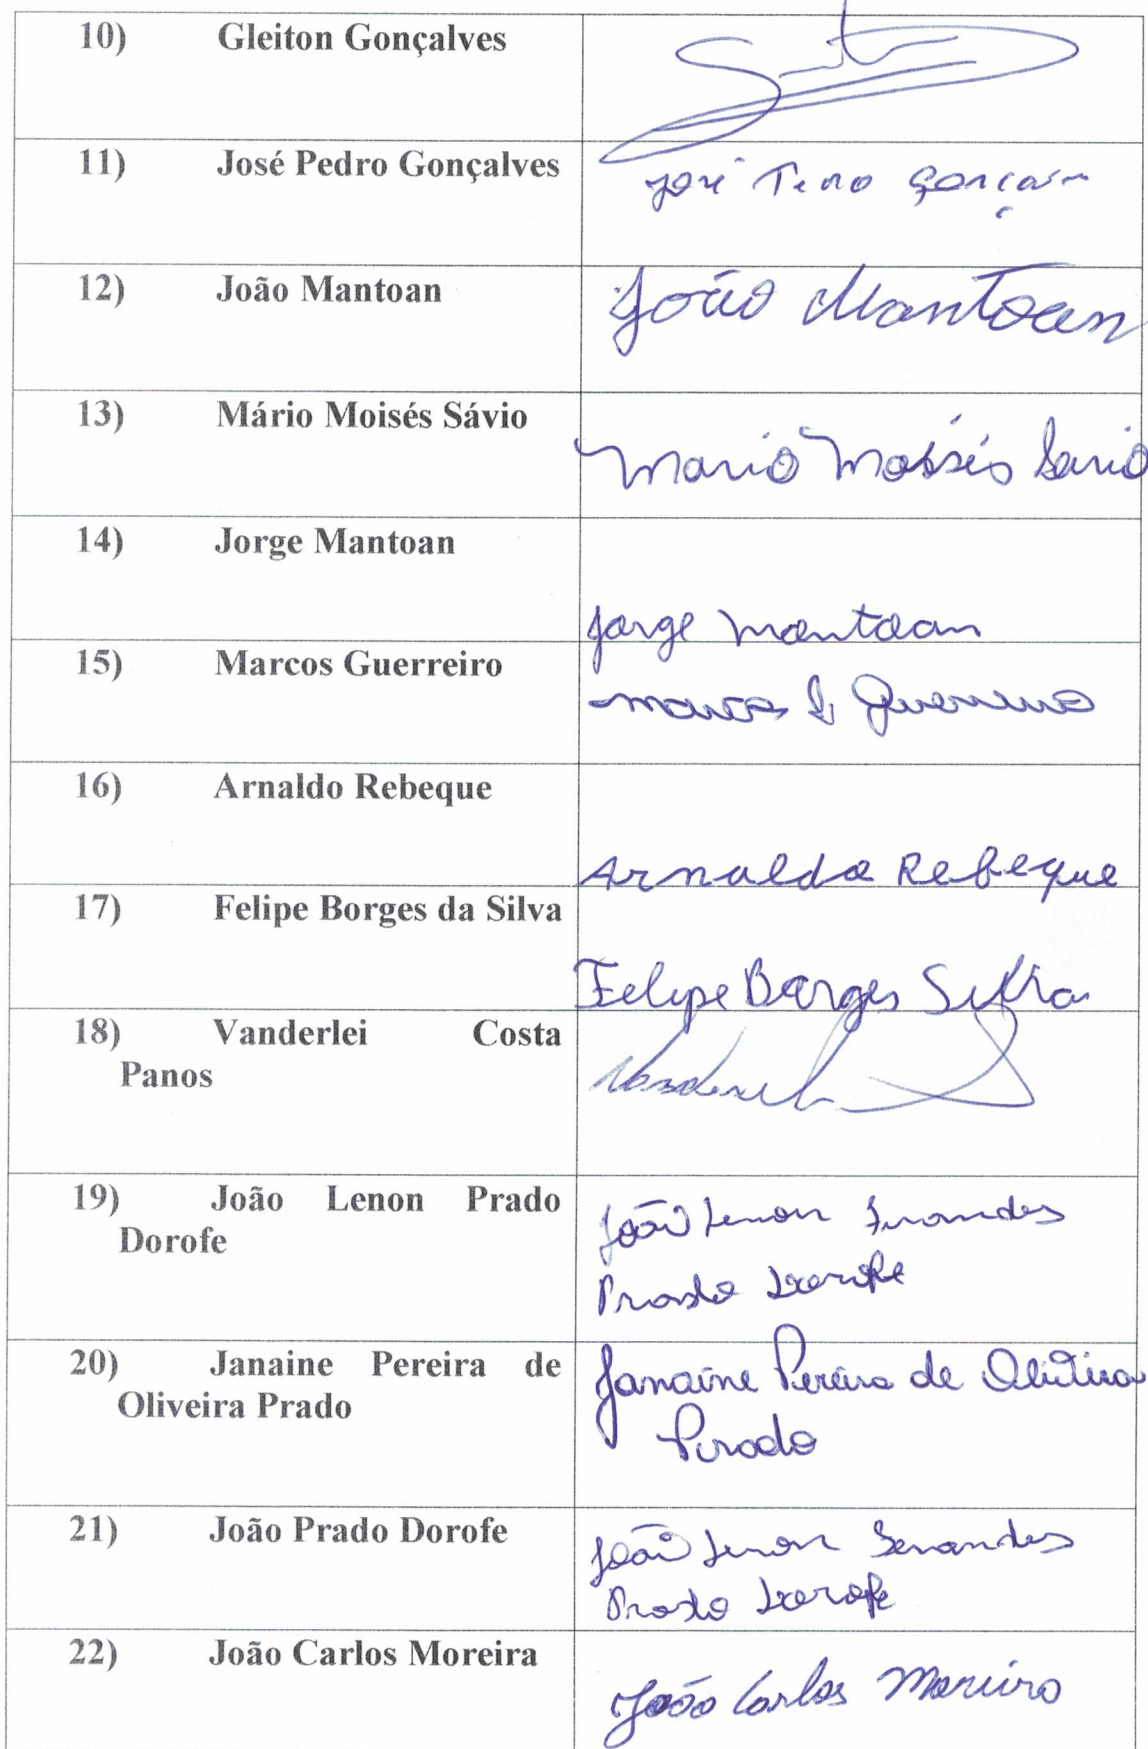 10) Gleiton Gonçalves
11) José Pedro Gonçalves
José Pedro Gonçalves
12) João Mantoan
João Mantoan
13) Mário Moisés Sávio
Mario Moisés Savio
14) Jorge Mantoan
Jorge Mantoan
15) Marcos Guerreiro
Marcos Guerreiro
16) Arnaldo Rebeque
Arnaldo Rebeque
17) Felipe Borges da Silva
Felipe Borges Silva
18) Vanderlei Costa
Panos
19) João Lenon Prado
Dorofe
João Lenon Fernandes
Prado Dorofe
20) Janaine Pereira de
Oliveira Prado
Janaine Pereira de Oliveira
Prado
21) João Prado Dorofe
João Lenon Fernandes
Prado Dorofe
22) João Carlos Moreira
João Carlos Moreira